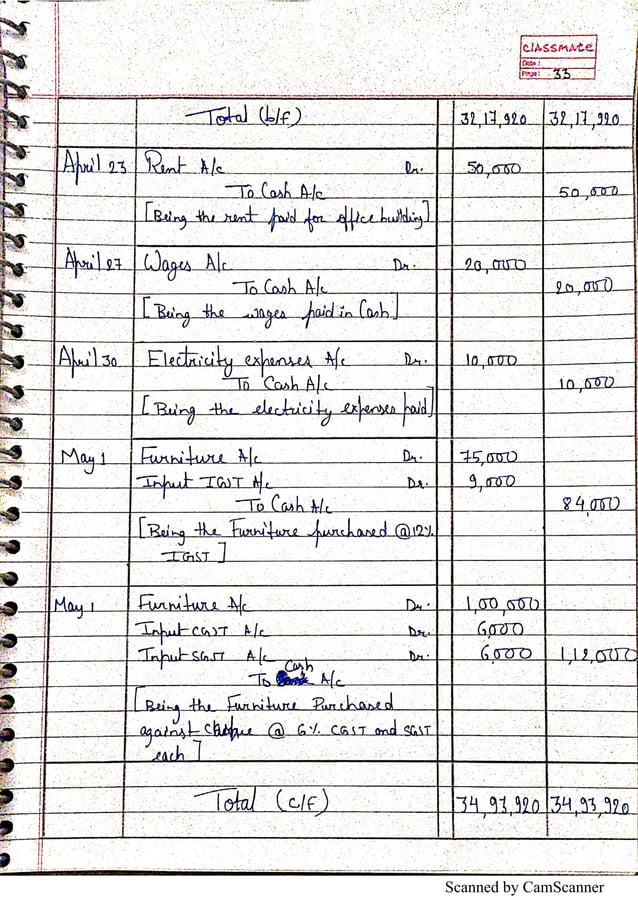 classmate
Date :
Page: 33
Total (b/f) 32,17,920 32,17,920
April 23 Rent A/c Dr. 50,000
To Cash A/c 50,000
[Being the rent paid for office building]
April 27 Wages A/c Dr. 20,000
To Cash A/c 20,000
[Being the wages paid in Cash]
April 30 Electricity expenses A/c Dr. 10,000
To Cash A/c 10,000
[Being the electricity expenses paid]
May 1 Furniture A/c Dr. 75,000
Input IGST A/c Dr. 9,000
To Cash A/c 84,000
[Being the Furniture purchased @12%
IGST]
May 1 Furniture A/c Dr. 1,00,000
Input CGST A/c Dr. 6,000
Input SGST A/c Dr. 6,000 1,12,000
To Cash A/c
[Being the Furniture Purchased
against @ 6% CGST and SGST
each]
Total (c/f) 34,93,920 34,93,920
Scanned by CamScanner